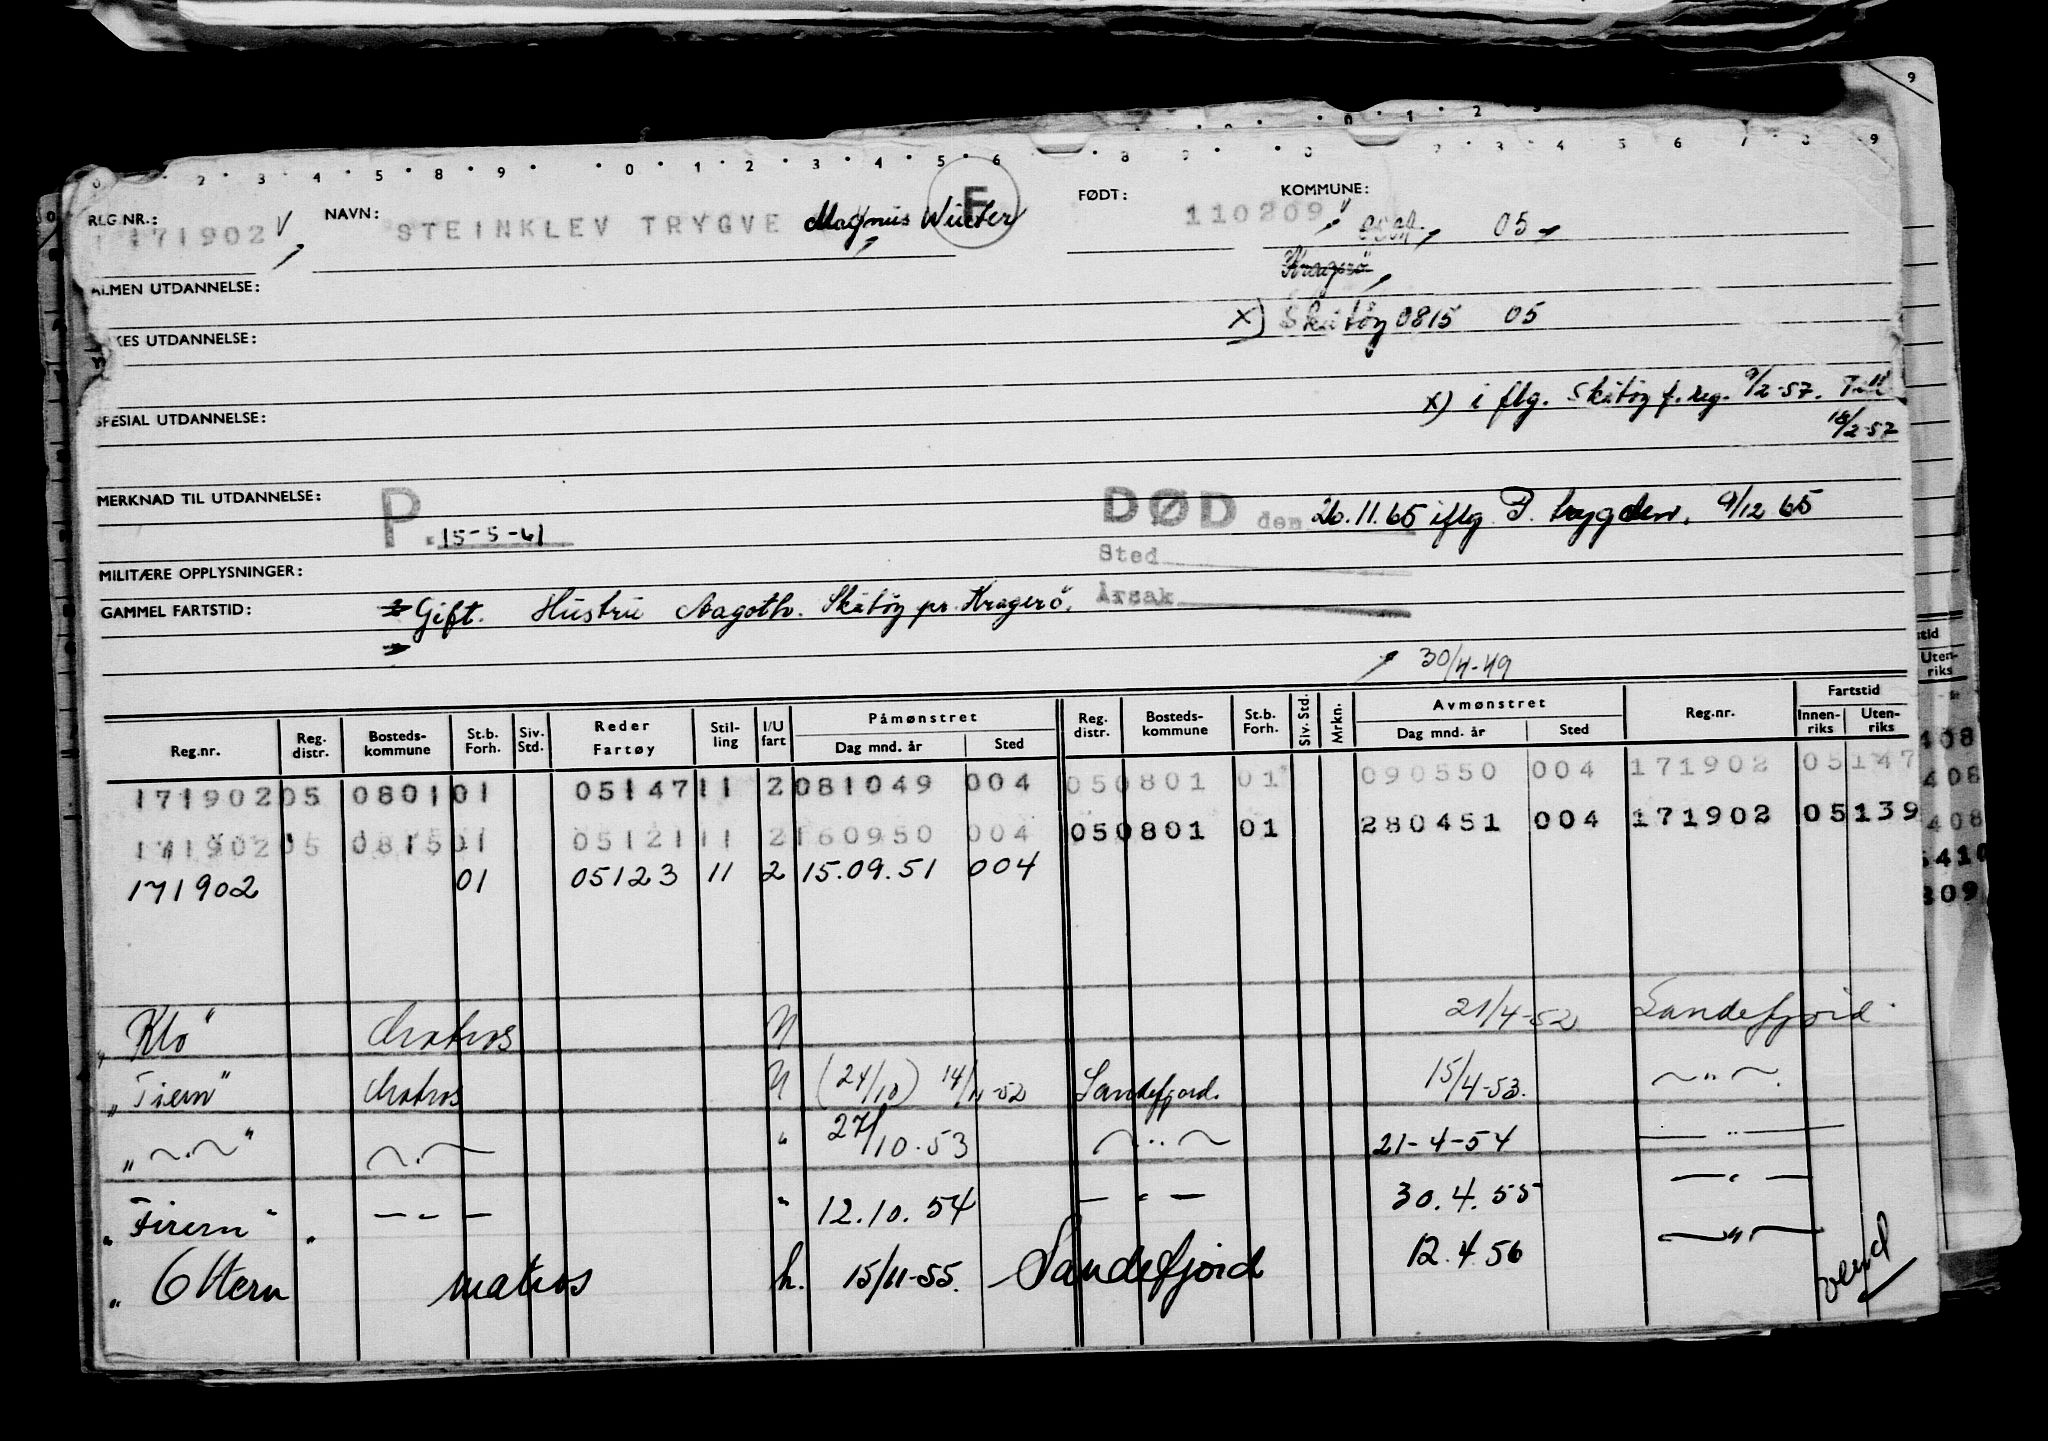 REG.NR.: 171902 V NAVN: STEINKLEV TRYGVE Magnus Winter F FØDT: 110209 KOMMUNE: 05
Kragerø
ALMEN UTDANNELSE:
x) Skåtøy 0815 05
UTDANNELSE:
x) i flg. Skåtøy f. reg. 9/2-57.
18/2-57
SPESIAL UTDANNELSE:
MERKNAD TIL UTDANNELSE:
P. 15-5-61
DØD den 26.11.65 iflg P. trygden, 9/12 65
Sted
MILITÆRE OPPLYSNINGER:
Årsak
GAMMEL FARTSTID: Gift. Hustru Aagoth. Skåtøy pr. Kragerø.
30/4-49
Reg.nr. Reg. distr. Bosteds-kommune St.b. Forh. Siv. Std. Reder Fartøy Stil-ling I/U fart Påmønstret Dag mnd. år Sted Reg. distr. Bosteds-kommune St.b. Forh. Siv. Std. Mrkn. Avmønstret Dag mnd. år Sted Reg.nr. Fartstid Innen-riks Uten-riks
171902 05 0801 01 05147 11 2 081049 004 05 0801 01 090550 004 171902 05 147
171902 05 0815 01 05121 11 2 160950 004 05 0801 01 280451 004 171902 05 139
171902 01 05123 11 2 15.09.51 004
„Klo" Matros U 21/4-52 Sandefjord.
„Tiern" Matros U (24/10) 14/11-52 Sandefjord. 15/4-53. ~"~.
„~.~" ~.~ " 27/10.53 ~..~ 21-4-54 —"—
„Firern" — " — " 12.10.54 — " — 30.4.55 — " —
„Ottern matros h. 15/11-55. Sandefjord 12.4.56 ~"~
vend